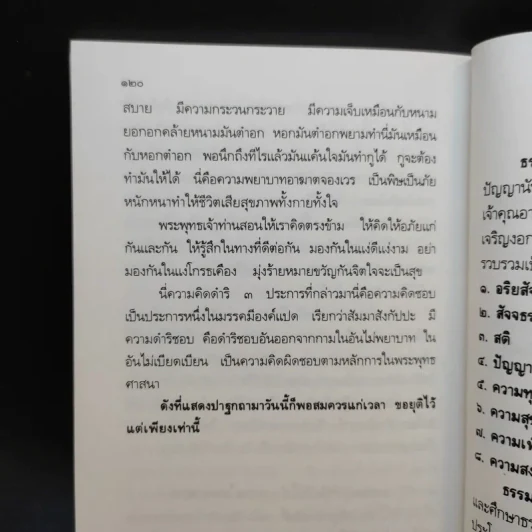 ๑๒๐
สบาย มีความกระวนกระวาย มีความเจ็บเหมือนกับหนาม
ยอกอกคล้ายหนามมันตำอก หอกมันตำอกพยามทำนี่มันเหมือน
กับหอกตำอก พอนึกถึงทีไรแล้วมันแค้นใจมันทำกูได้ กูจะต้อง
ทำมันให้ได้ นี่คือความพยาบาทอาฆาตจองเวร เป็นพิษเป็นภัย
หนักหนาทำให้ชีวิตเสียสุขภาพทั้งกายทั้งใจ
พระพุทธเจ้าท่านสอนให้เราคิดตรงข้าม ให้คิดให้อภัยแก่
กันและกัน ให้รู้สึกในทางที่ดีต่อกัน มองกันในแง่ดีแง่งาม อย่า
มองกันในแง่โกรธเคือง มุ่งร้ายหมายขวัญกันจิตใจจะเป็นสุข
นี่ความคิดดำริ ๓ ประการที่กล่าวมานี่คือความคิดชอบ
เป็นประการหนึ่งในมรรคมีองค์แปด เรียกว่าสัมมาสังกัปปะ มี
ความดำริชอบ คือดำริชอบอันออกจากกามในอันไม่พยาบาท ใน
อันไม่เบียดเบียน เป็นความคิดผิดชอบตามหลักการในพระพุทธ
ศาสนา
ดังที่แสดงปาฐกถามาวันนี้ก็พอสมควรแก่เวลา ขอยุติไว้
แต่เพียงเท่านี้
ปัญญานั
เจ้าคุณอา
เจริญงอก
รวบรวมเ
๑. อริยสั
๒. สัจจธร
๓. สติ
๔. ปัญญา
๕. ความทุ
๖. ความสุ
๗. ความเ
๘. ความส
ธรรม
และศึกษาธร